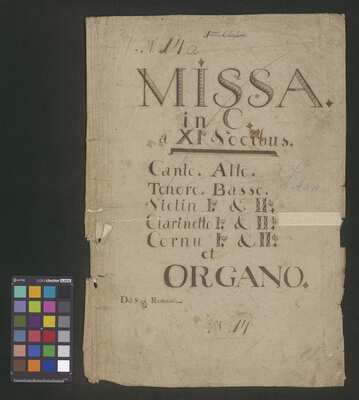 N. 14 a
MISSA.
in C.
a XI. Vocibus.
Canto. Alto.
Tenore. Basso.
Violin I. & II.
Clarinetto I. & II.
Cornu I. & II.
et
ORGANO.
N. 14